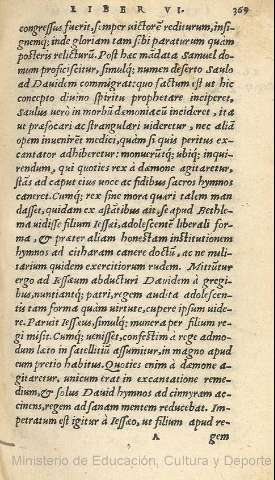 LIBER VI. 369
congressus fuerit, semper victorē rediturum, insi-
gnemq; inde gloriam tam sibi paraturum quàm
posteris relicturū. Post hæc mādata Samuel do-
mum proficiscitur, simulq; numen deserto Saulo
ad Dauidem commigrat: quo factum est ut hic
concepto diuino spiritu prophetare inciperet,
Saulus uerò in morbū demoniacū incideret, ita
ut præfocari ac strangulari uideretur, nec aliā
opem inuenirēt medici, quàm si quis peritus ex-
cantator adhiberetur: monuerūtq; ubiq; inqui-
rendum, qui quoties rex à dæmone agitaretur,
stās ad caput eius uoce ac fidibus sacros hymnos
caneret. Cumq; rex sine mora quæri talem man
dasset, quidam ex astātibus ait, se apud Bethle-
ma uidisse filium Iessæi, adolescentē liberali for-
ma, & præter aliam honestam institutionem
hymnos ad citharam canere doctū, ac ne mili-
tarium quidem exercitiorum rudem. Mittūtur
ergo ad Iessæum abducturi Dauidem à gregi-
bus, nuntiantq; patri, regem audita adolescen-
tis tam forma quàm uirtute, cupere ipsum uide-
re. Paruit Iesseus, simulq; munera per filium re-
gi misit. Cumq; uenisset, confestim à rege admo-
dum læto in satellitiū assumitur, in magno apud
eum pretio habitus. Quoties enim à dæmone a-
gitaretur, unicum erat in excantatione reme-
dium, & solus Dauid hymnos ad cinyram ac-
cinens, regem ad sanam mentem reducebat. Im-
petratum est igitur à Iessæo, ut filium apud re-
A gem
Ministerio de Educación, Cultura y Deporte